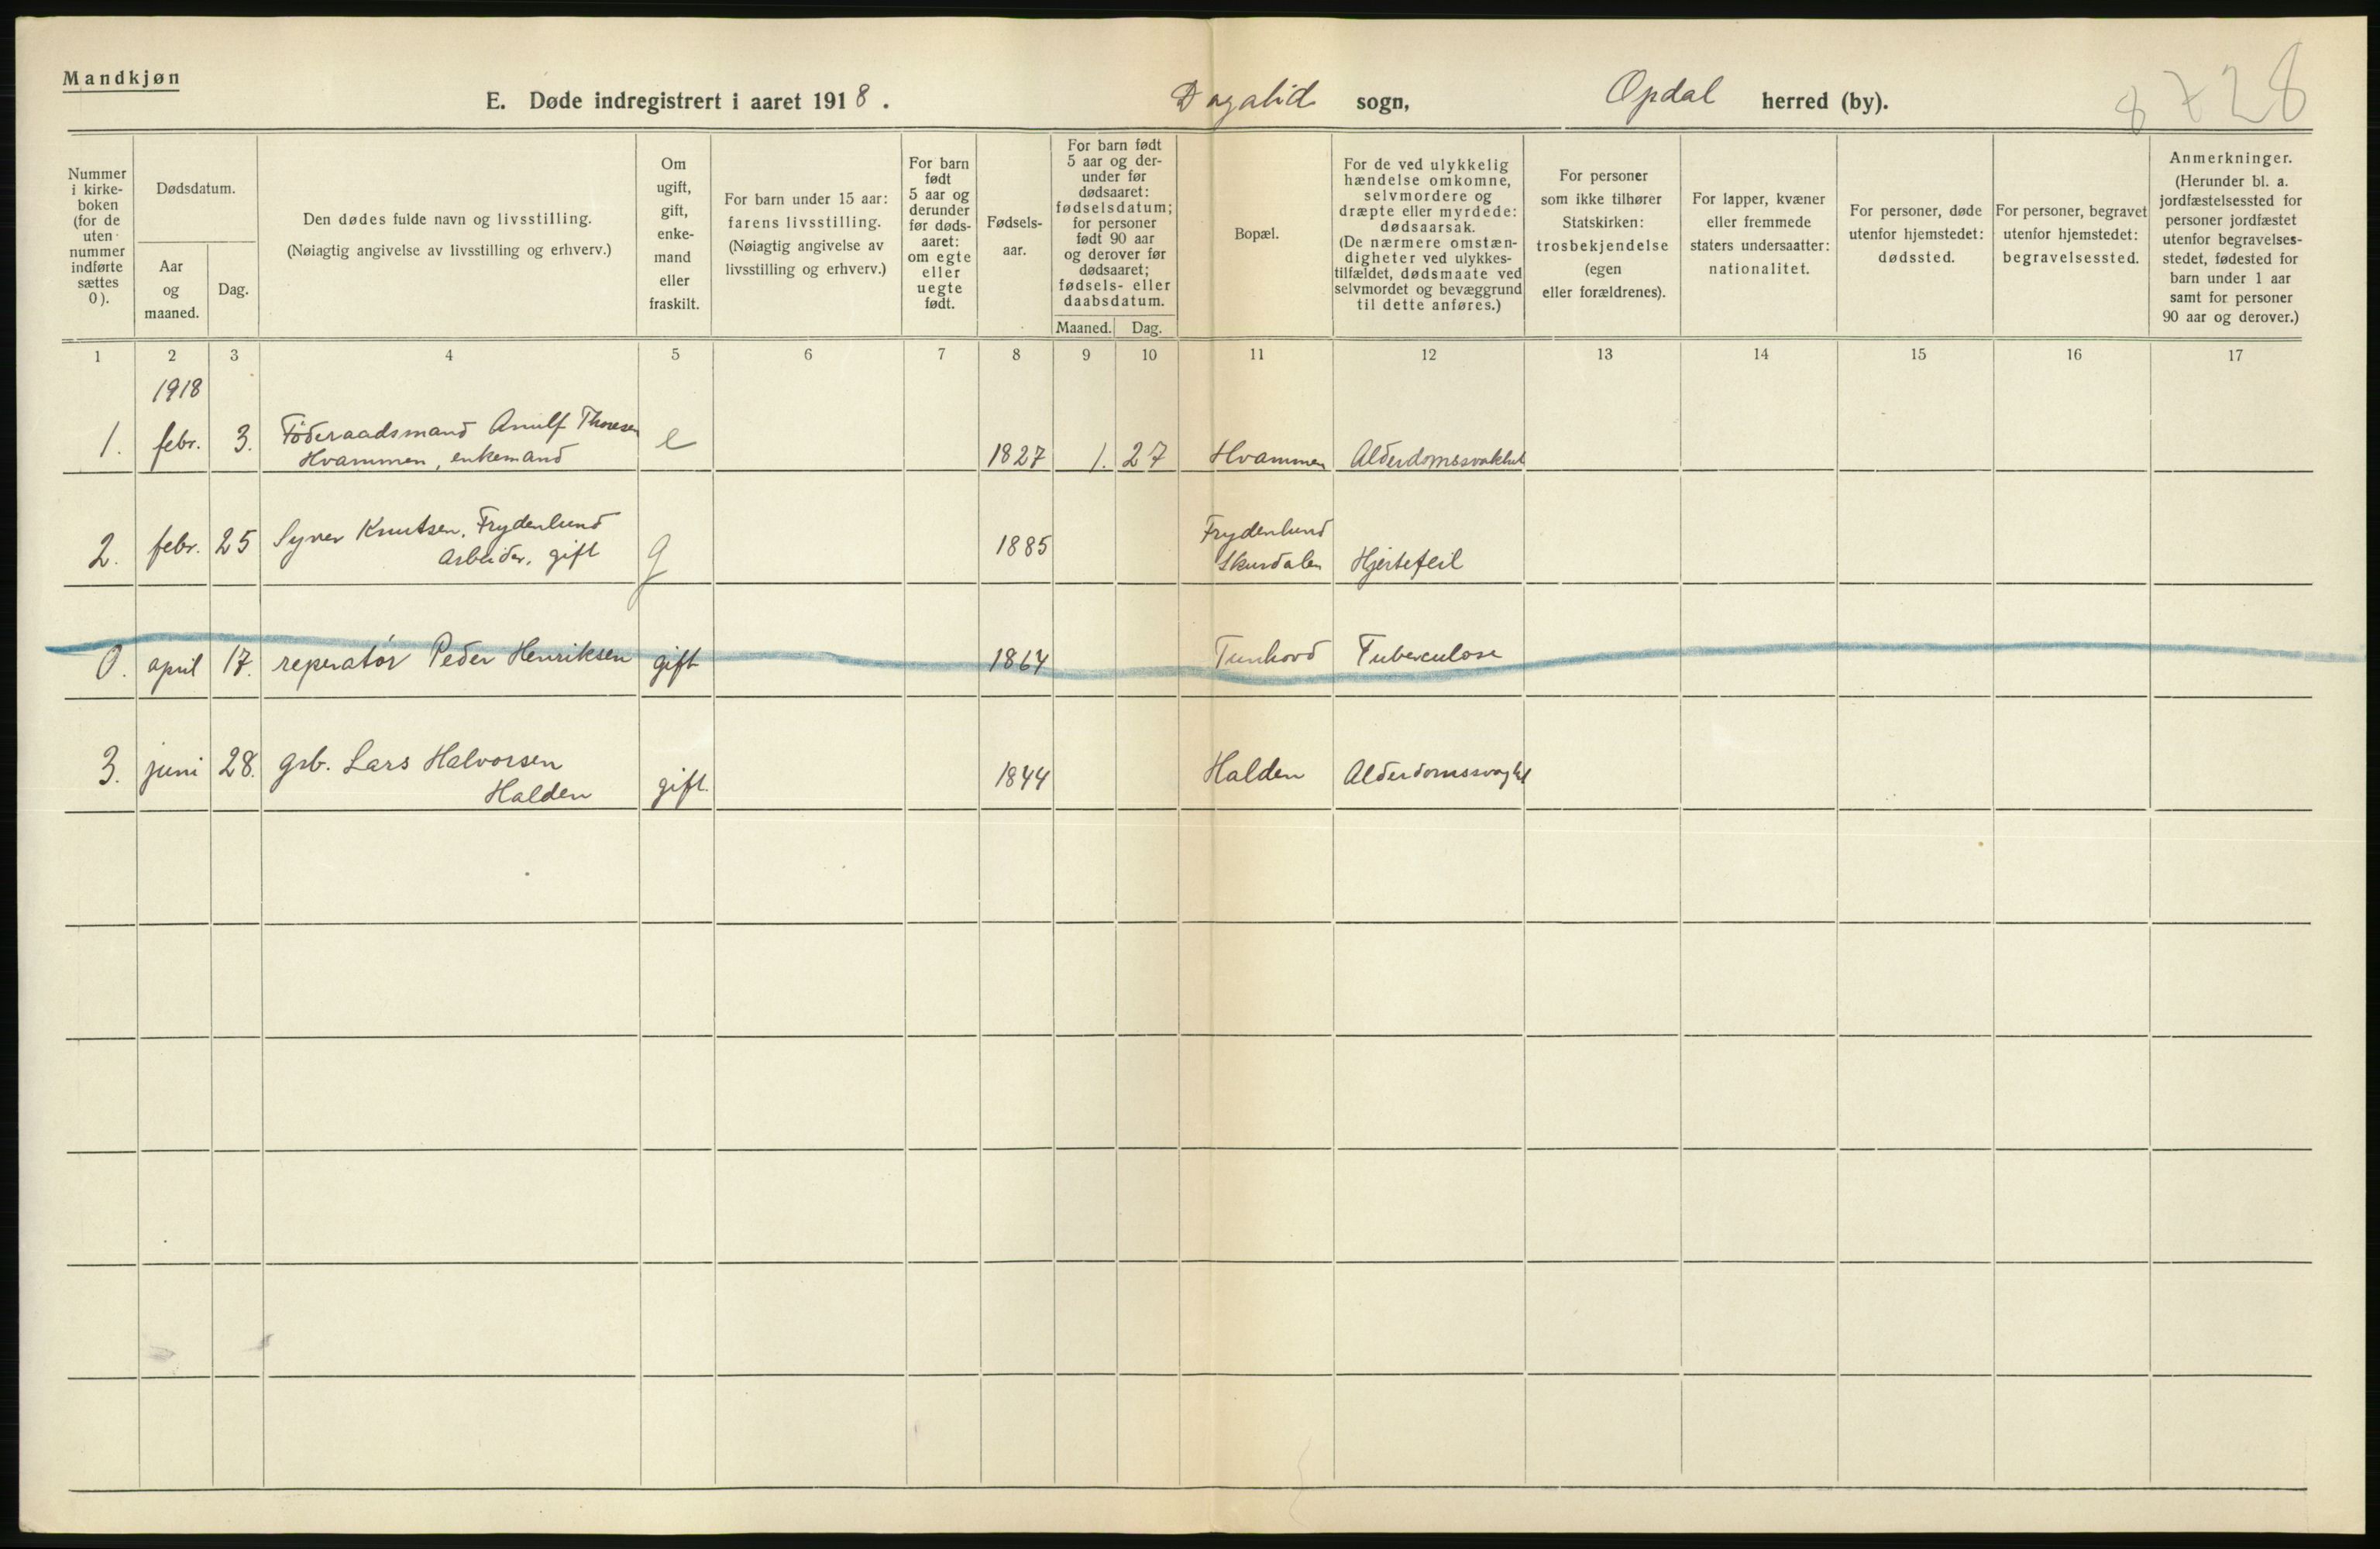 Mandkjøn
E. Døde indregistrert i aaret 1918. Dagalid sogn, Opdal herred (by).
8 728
Nummer i kirke- boken (for de uten nummer indførte sættes 0).
Dødsdatum.
Aar og maaned.
Dag.
Den dødes fulde navn og livsstilling.
(Nøiagtig angivelse av livsstilling og erhverv.)
Om ugift, gift, enke- mand eller fraskilt.
For barn under 15 aar: farens livsstilling. (Nøiagtig angivelse av livsstilling og erhverv.)
For barn født 5 aar og derunder før døds- aaret: om egte eller uegte født.
Fødsels- aar.
For barn født 5 aar og der- under før dødsaaret: fødselsdatum; for personer født 90 aar og derover før dødsaaret; fødsels- eller daabsdatum.
Maaned. Dag.
Bopæl.
For de ved ulykkelig hændelse omkomne, selvmordere og dræpte eller myrdede: dødsaarsak. (De nærmere omstæn- digheter ved ulykkes- tilfældet, dødsmaate ved selvmordet og bevæggrund til dette anføres.)
For personer som ikke tilhører Statskirken: trosbekjendelse (egen eller forældrenes).
For lapper, kvæner eller fremmede staters undersaatter: nationalitet.
For personer, døde utenfor hjemstedet: dødssted.
For personer, begravet utenfor hjemstedet: begravelsessted.
Anmerkninger. (Herunder bl. a. jordfæstelsessted for personer jordfæstet utenfor begravelses- stedet, fødested for barn under 1 aar samt for personer 90 aar og derover.)
1 2 3 4 5 6 7 8 9 10 11 12 13 14 15 16 17
1918
1. febr. 3. Föderaadsmand Arnulf Thoresen
Hvammen, enkemand e 1827 1. 27 Hvammen Alderdomssvakhet
2. febr. 25 Syver Knutsen, Frydenlund
Arbeider, gift g 1885 Frydenlund
Skurdalen Hjertefeil
0. april 17. reperatör Peder Henriksen gift 1864 Tunhovd Tuberculose
3. juni 28. gsb. Lars Halvorsen
Halden gift. 1844 Halden Alderdomssvaghet